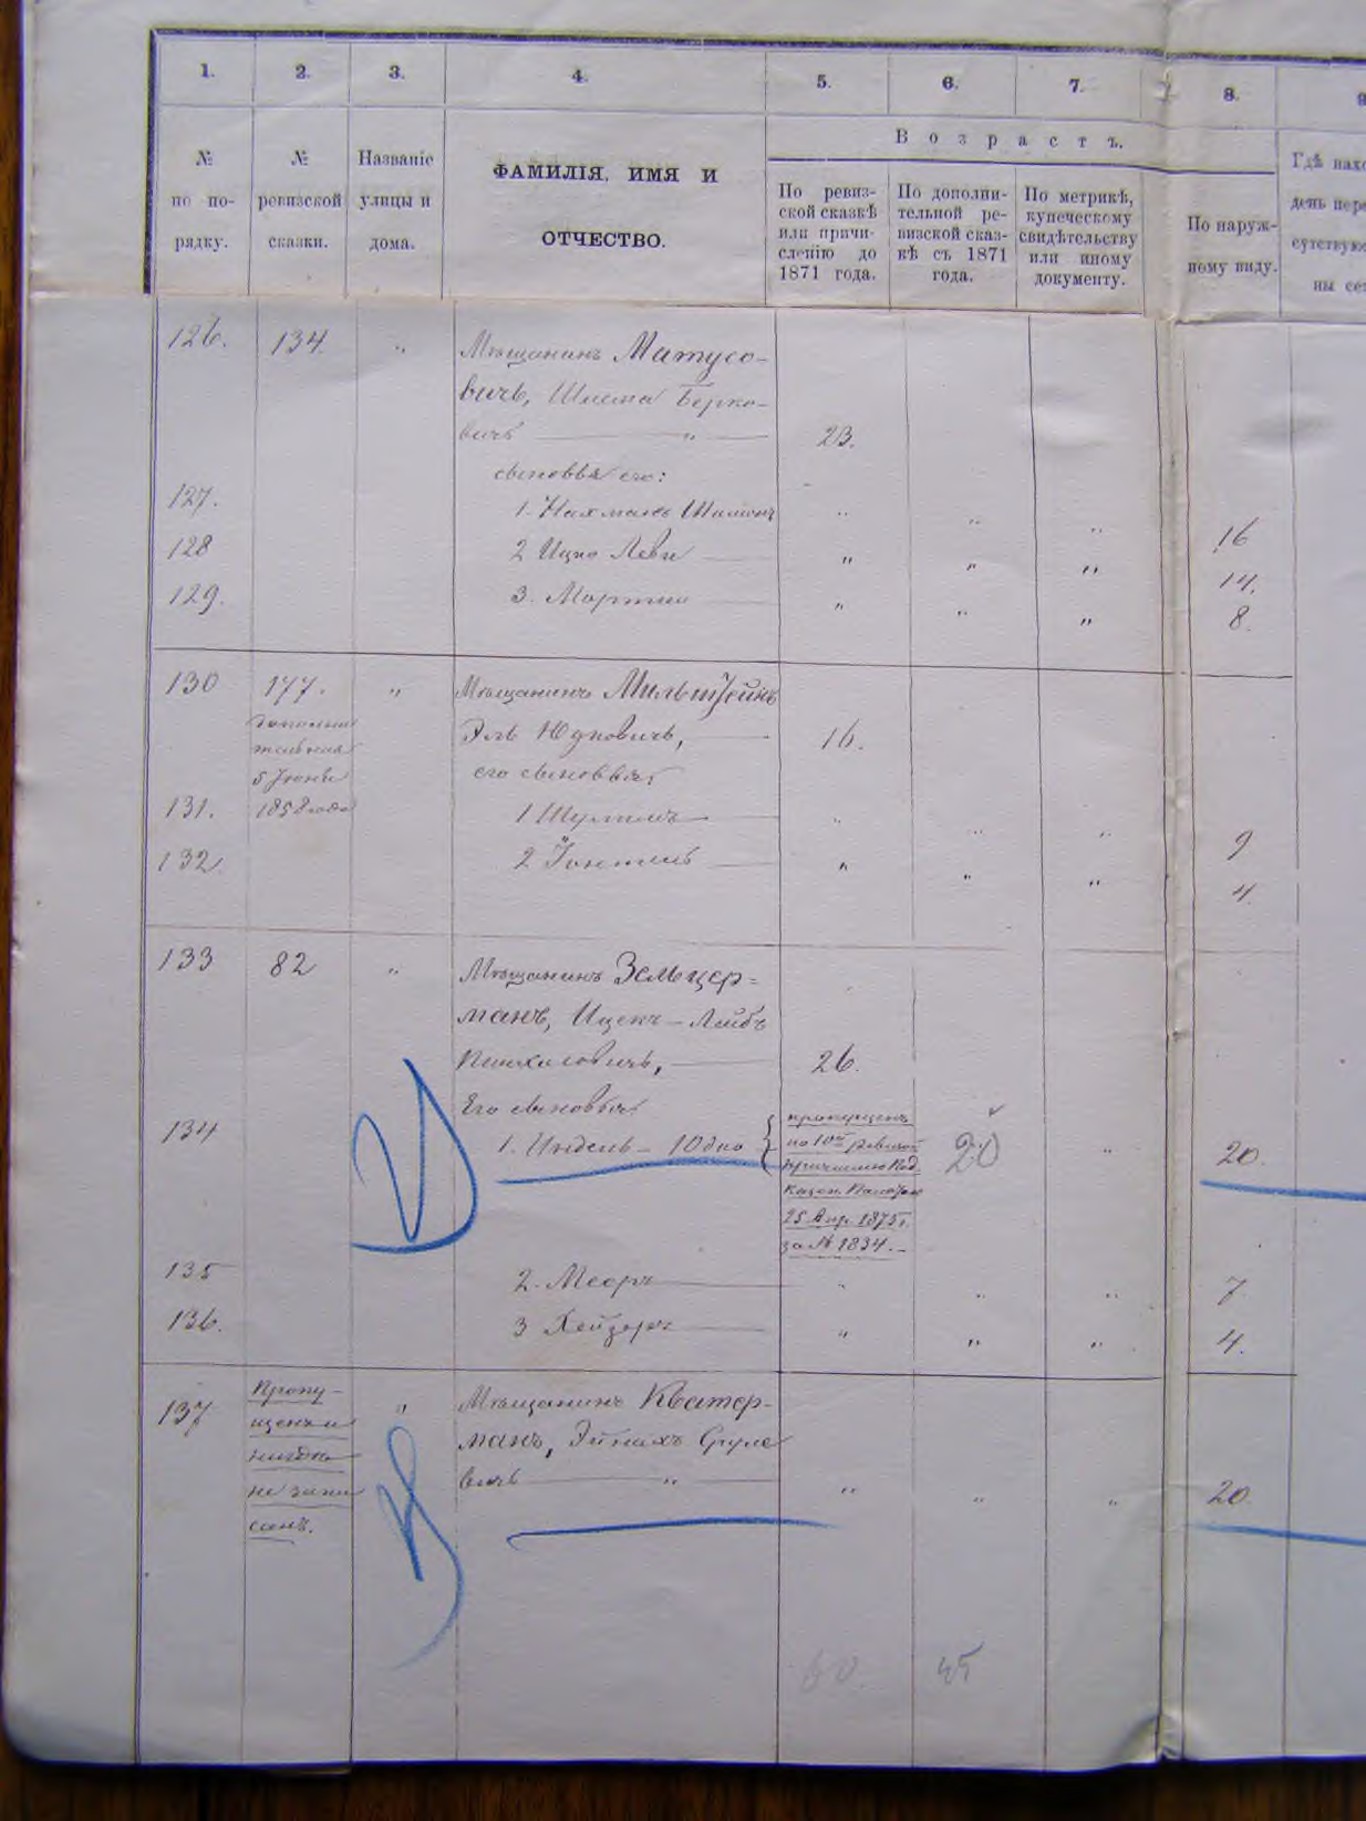 1. 2. 3. 4. 5. 6. 7. 8. 9
В о з р а с т ъ.
№ по по-
рядку.
№ ревизской
сказки.
Названіе
улицы и
дома.
ФАМИЛІЯ, ИМЯ И
ОТЧЕСТВО.
По ревиз-
ской сказкѣ
или причи-
сленію до
1871 года.
По дополни-
тельной ре-
визской сказ-
кѣ съ 1871
года.
По метрикѣ,
купеческому
свидѣтельству
или иному
документу.
По наруж-
ному виду.
Гдѣ нахо
день пере
сутствую
ны се
126. 134. " Мѣщанинъ Матусо-
вичъ, Шлема Берко-
вичъ " 23.
сыновья его:
127. 1. Нахманъ Шимонъ " " " 16
128 2 Ицко Леви " " " 14.
129. 3. Мортко " " " 8.
130 177. " Мѣщанинъ Мильштейнъ
Эль Юдковичъ, 16.
его сыновья:
5 Іюня
1858 года
131. 1 Шулимъ " " " 9
132. 2 " " " 4.
133 82 " Мѣщанинъ Зельцер=
манъ, Ицекъ-Лейбъ
Пинхасовичъ, 26.
Его сыновья:
134 1. Индель-Юдко { пропущенъ
по 10й ревизіи 20 " 20.
Казен. Палатою
25 Апр. 1875 г.
за № 1834.-
135 2. Мееръ " " " 7
136. 3 Хейзеръ " " " 4.
137 Пропу-
щенъ и
нигдѣ
не запи
санъ.
" Мѣщанинъ Кватер-
манъ, Эйнахъ Сруле
вичъ " " " " 20.
60 45